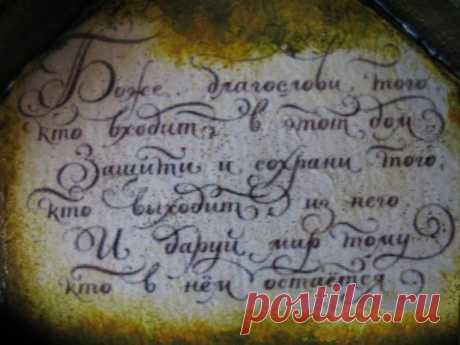 Боже благослови того
кто входит в этот дом
Защити и сохрани того,
кто выходит из него
И даруй мир тому
кто в нём остаётся
postila.ru